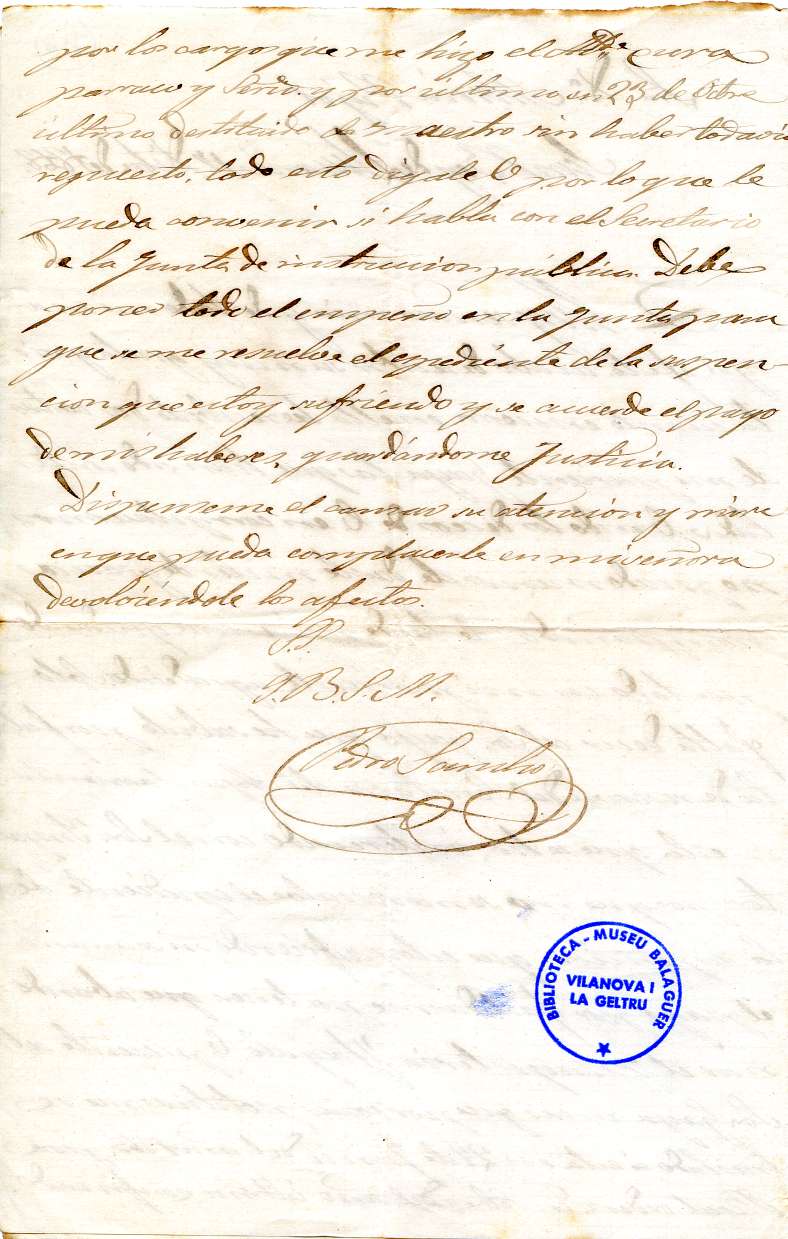 por los cargos que me hizo el cura
parraco y Serio. y por último en 23 de Octre
último destituido de maestro sin haber todavia
repuesto, todo esto digale V por lo que le
pueda convenir si habla con el Secretario
de la Junta de instruccion pública. Debe
poner todo el empeño en la Junta para
que se me resuelve el espediente de la suspen-
cion que estoy sufriendo y se acuerde el pago
de mis haberes, guardándome Justicia.
Dispenseme el cansar su atención y mire
en que pueda complacerle en mi señora
devolviéndole los afectos.
S.S.
Q.B.S.M.
Pedro Sancho
BIBLIOTECA - MUSEU BALAGUER
VILANOVA I
LA GELTRU